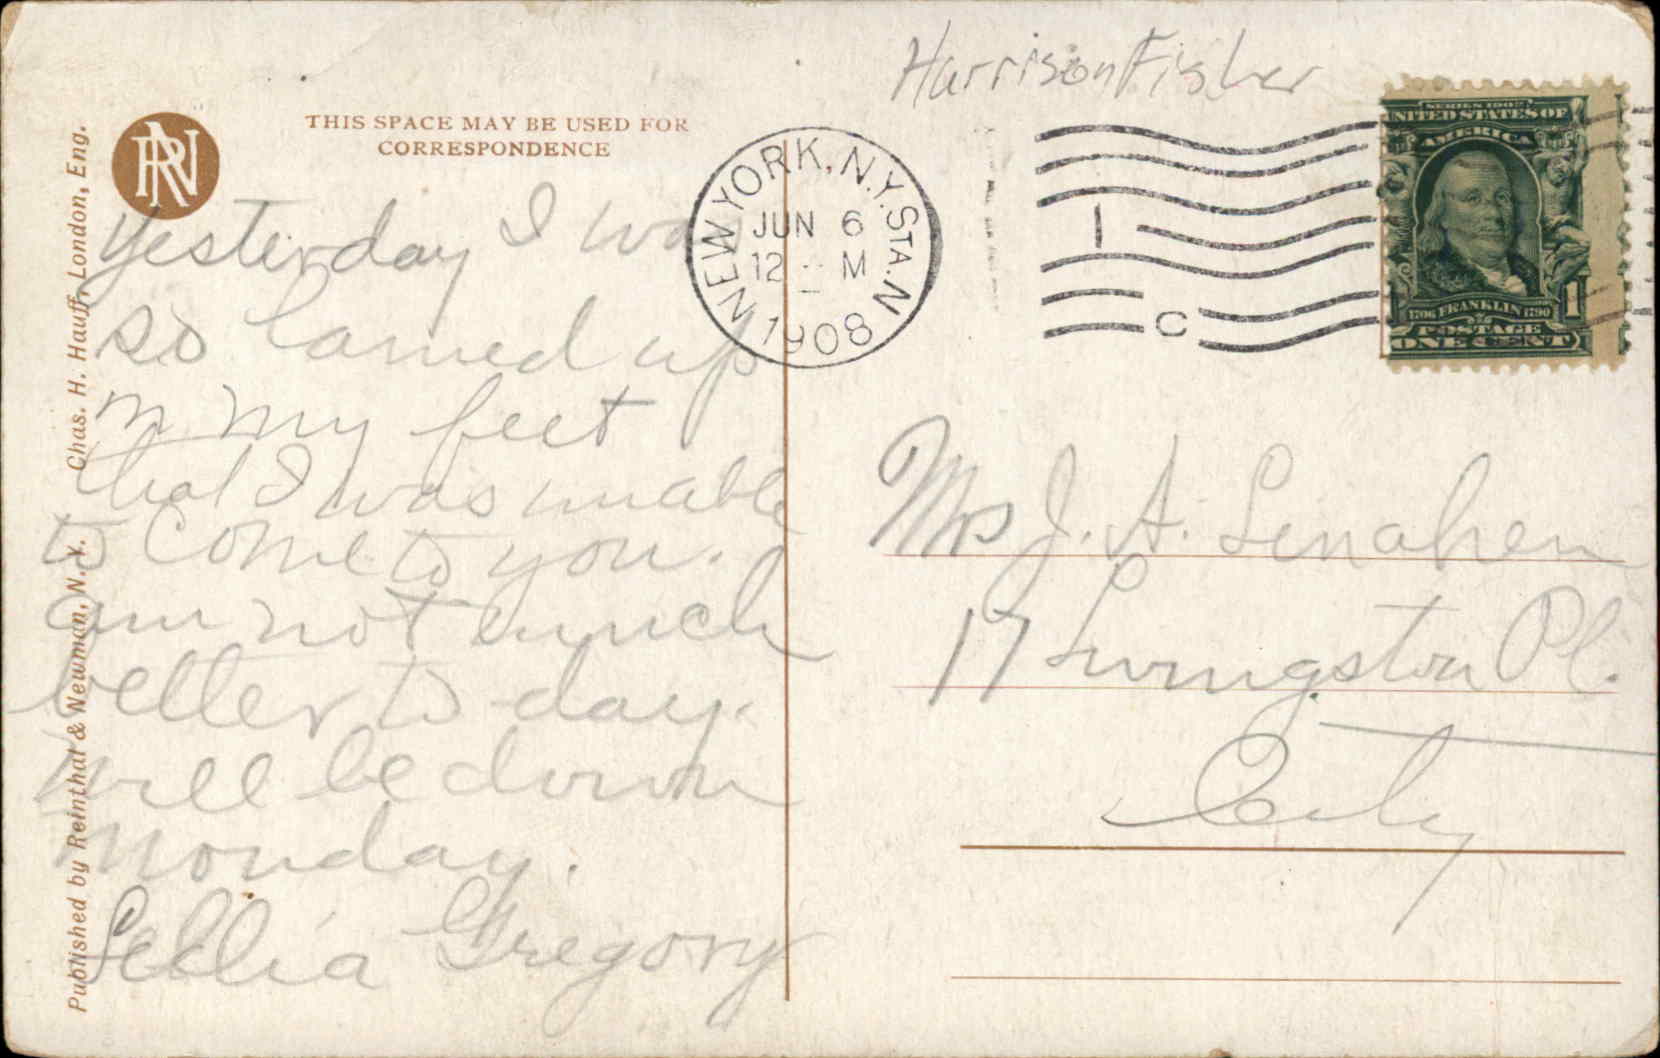 Harrison Fisher
THIS SPACE MAY BE USED FOR
CORRESPONDENCE
RN
NEW YORK, N.Y. STA. N
JUN 6
12 M
1908
1 C
SERIES 1902
UNITED STATES OF
AMERICA
1706 FRANKLIN 1790
POSTAGE
ONE CENT
1
Yesterday I was
so lamed up
in my feet
that I was unable
to come to you.
am not much
better to day.
Will be down
Monday.
Gregory
Mrs J. A. Lenahen
17 Livingston Pl.
City
Published by Reinthal & Newman, N. Y. Chas. H. Hauff, London, Eng.